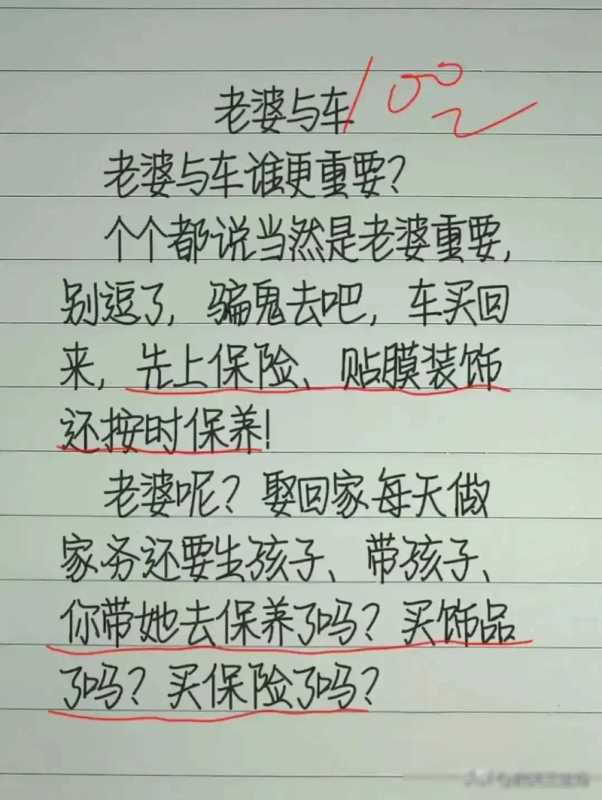 老婆与车 100
老婆与车谁更重要?
个个都说当然是老婆重要,
别逗了,骗鬼去吧,车买回
来,先上保险、贴膜装饰
还按时保养!
老婆呢?娶回家每天做
家务还要生孩子、带孩子、
你带她去保养了吗?买饰品
了吗?买保险了吗?